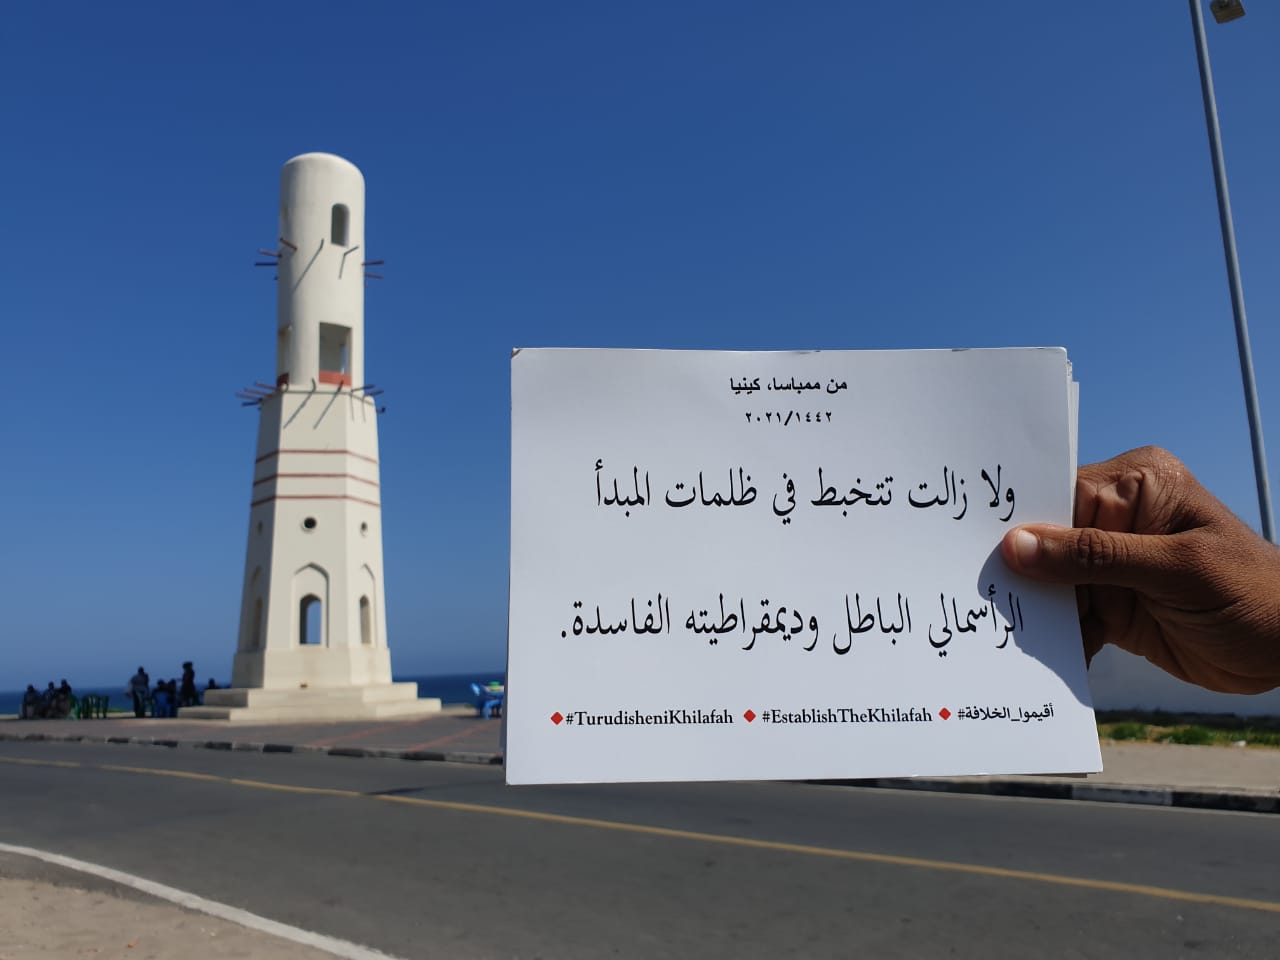 من ممباسا، كينيا
٢٠٢١/١٤٤٢
ولا زالت تتخبط في ظلمات المبدأ
الرأسمالي الباطل وديمقراطيته الفاسدة.
#TurudisheniKhilafah #EstablishTheKhilafah #أقيموا_الخلافة